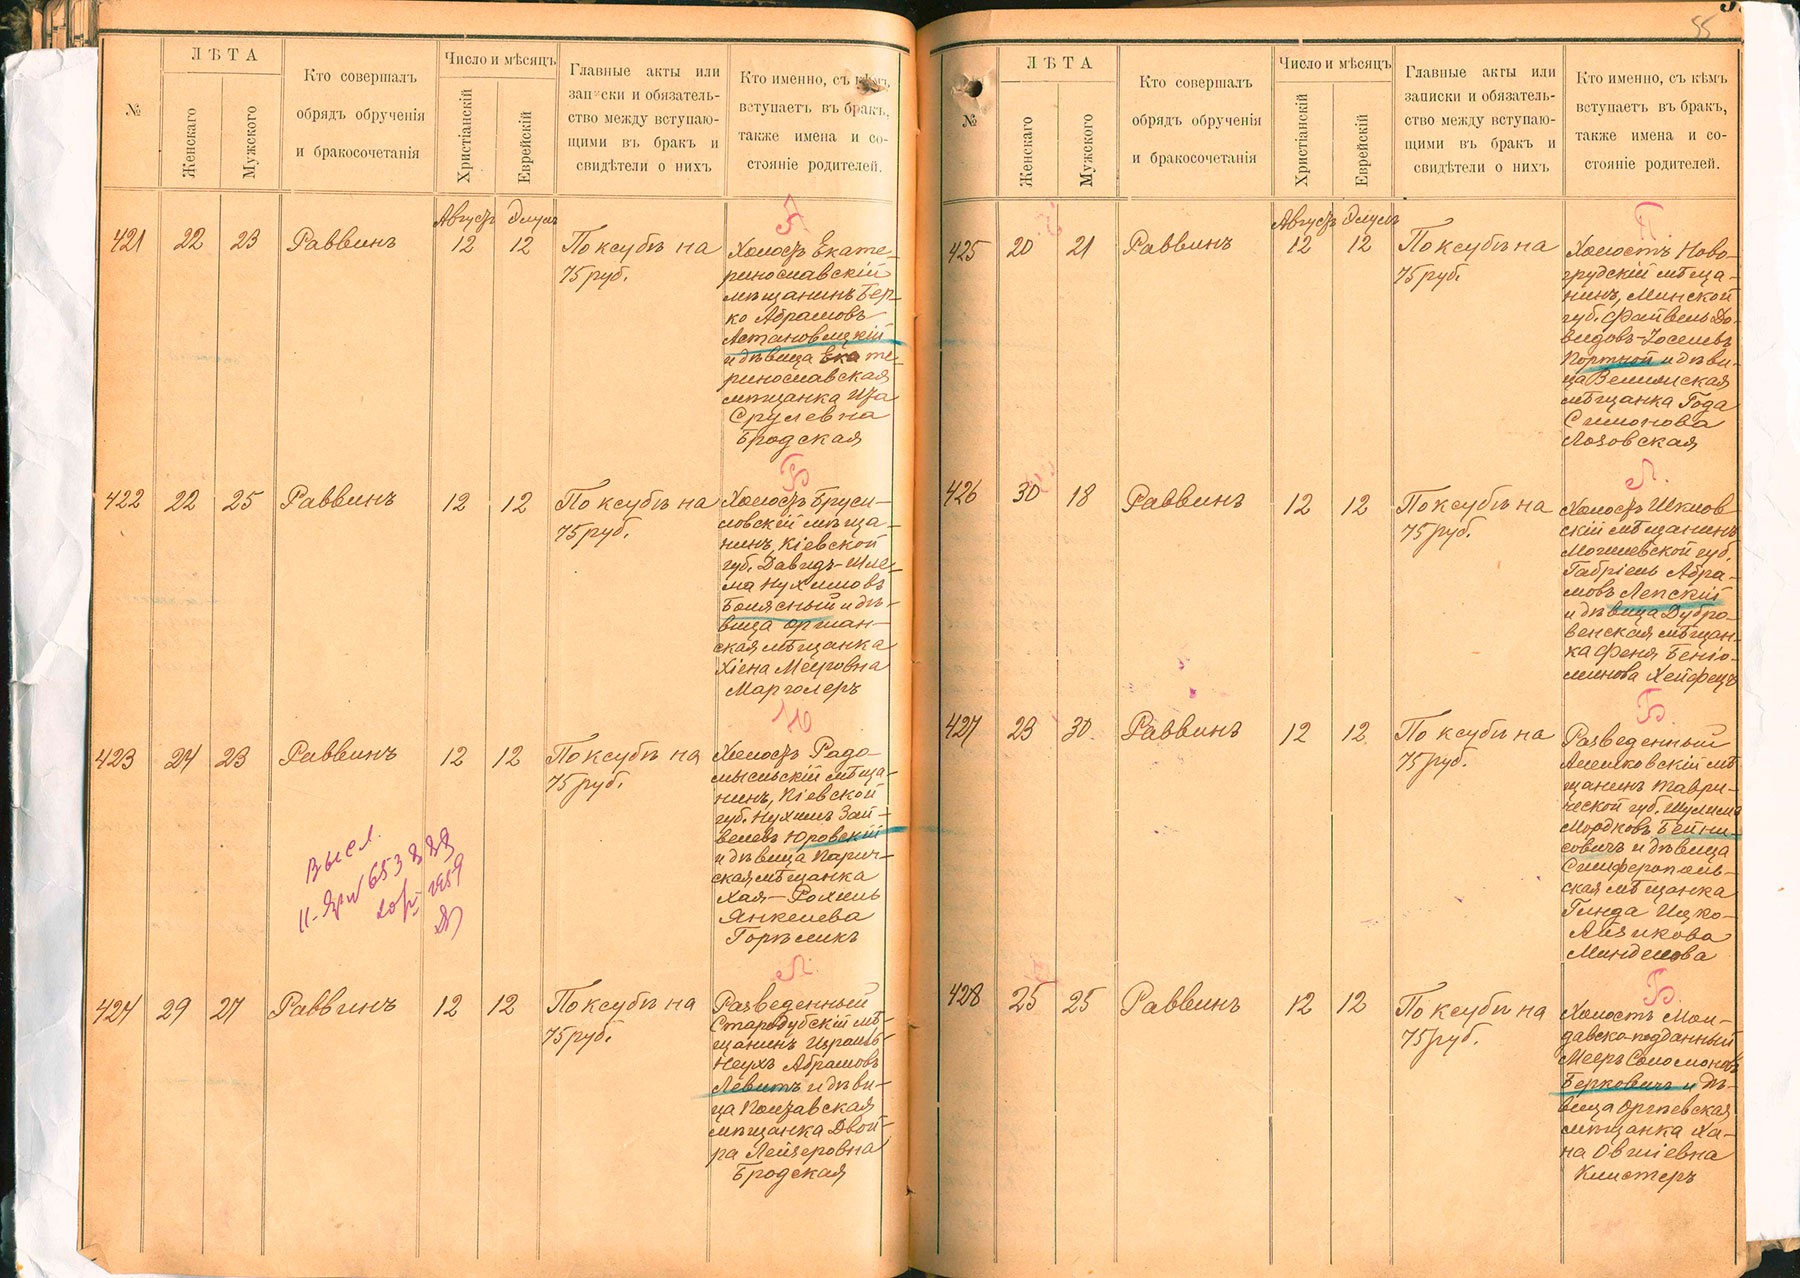 55
№
ЛѢТА
Женскаго
Мужского
Кто совершалъ
обрядъ обрученія
и бракосочетанія
Число и мѣсяцъ
Христіанскій
Еврейскій
Главные акты или
записки и обязатель-
ство между вступаю-
щими въ бракъ и
свидѣтели о нихъ
Кто именно, съ кѣмъ
вступаетъ въ бракъ,
также имена и со-
стояніе родителей.
Августъ Элулъ
421 22 23 Раввинъ 12 12 По ксубѣ на
75 руб.
А
Холостъ Екате-
ринославскій
мѣщанинъ Бер-
ко Абрамовъ
Астановицкій
и дѣвица Екате
ринославская
мѣщанка Иза
Срулевна
Бродская
422 22 25 Раввинъ 12 12 По ксубѣ на
75 руб.
Б
Холостъ Бруси-
ловскій мѣща-
нинъ, Кіевской
губ. Давидъ-Шле-
ма Нухимовъ
Боляcный и дѣ-
вица Оршан-
ская мѣщанка
Хіена Мееровна
Марголеръ
423 24 23 Раввинъ 12 12 По ксубѣ на
75 руб.
Ю
Холостъ Радо
мысльскій мѣща-
нинъ, Кіевской
губ. Нухимъ Зай-
велевъ Юровскій
и дѣвица Парич-
ская мѣщанка
Хая-Рохиль
Янкелева
Горѣликъ
Высл.
653
1959
424 29 27 Раввинъ 12 12 По ксубѣ на
75 руб.
Л.
Разведенный
Стародубскій мѣ-
щанинъ Израиль-
Неухъ Абрамовъ
Левитъ и дѣви-
ца Полтавская
мѣщанка Двой-
ра Лейзеровна
Бродская
№
ЛѢТА
Женскаго
Мужского
Кто совершалъ
обрядъ обрученія
и бракосочетанія
Число и мѣсяцъ
Христіанскій
Еврейскій
Главные акты или
записки и обязатель-
ство между вступаю-
щими въ бракъ и
свидѣтели о нихъ
Кто именно, съ кѣмъ
вступаетъ въ бракъ,
также имена и со-
стояніе родителей.
Августъ Элулъ
425 20 21 Раввинъ 12 12 По ксубѣ на
75 руб.
П.
Холостъ Ново-
грудскій мѣща-
нинъ, Минской
губ. Файвель До-
видовъ-Іоселевъ
Портной и дѣви-
ца Велижская
мѣщанка Года
Симонова
Лозовская
426 30 18 Раввинъ 12 12 По ксубѣ на
75 руб.
Л.
Холостъ Шклов-
скій мѣщанинъ
Могилевской губ.
Габріель Абра-
мовъ Лепскій
и дѣвица Дубро-
венская мѣщан-
ка Феня Беніо-
минова Хейфецъ
427 23 30 Раввинъ 12 12 По ксубѣ на
75 руб.
Б.
Разведенный
Алешковскій мѣ
щанинъ Таври-
ческой губ. Шулимъ
Мордковъ Бейни-
совичъ и дѣвица
Симферополь-
ская мѣщанка
Гинда Ицко-
Айзикова
Минделова
428 25 25 Раввинъ 12 12 По ксубѣ на
75 руб.
Б.
Холостъ Мол-
давско-подданный
Мееръ Соломоновъ
Берковичъ и дѣ-
вица Оргѣевская
мѣщанка Ха-
на Овшіевна
Клистеръ